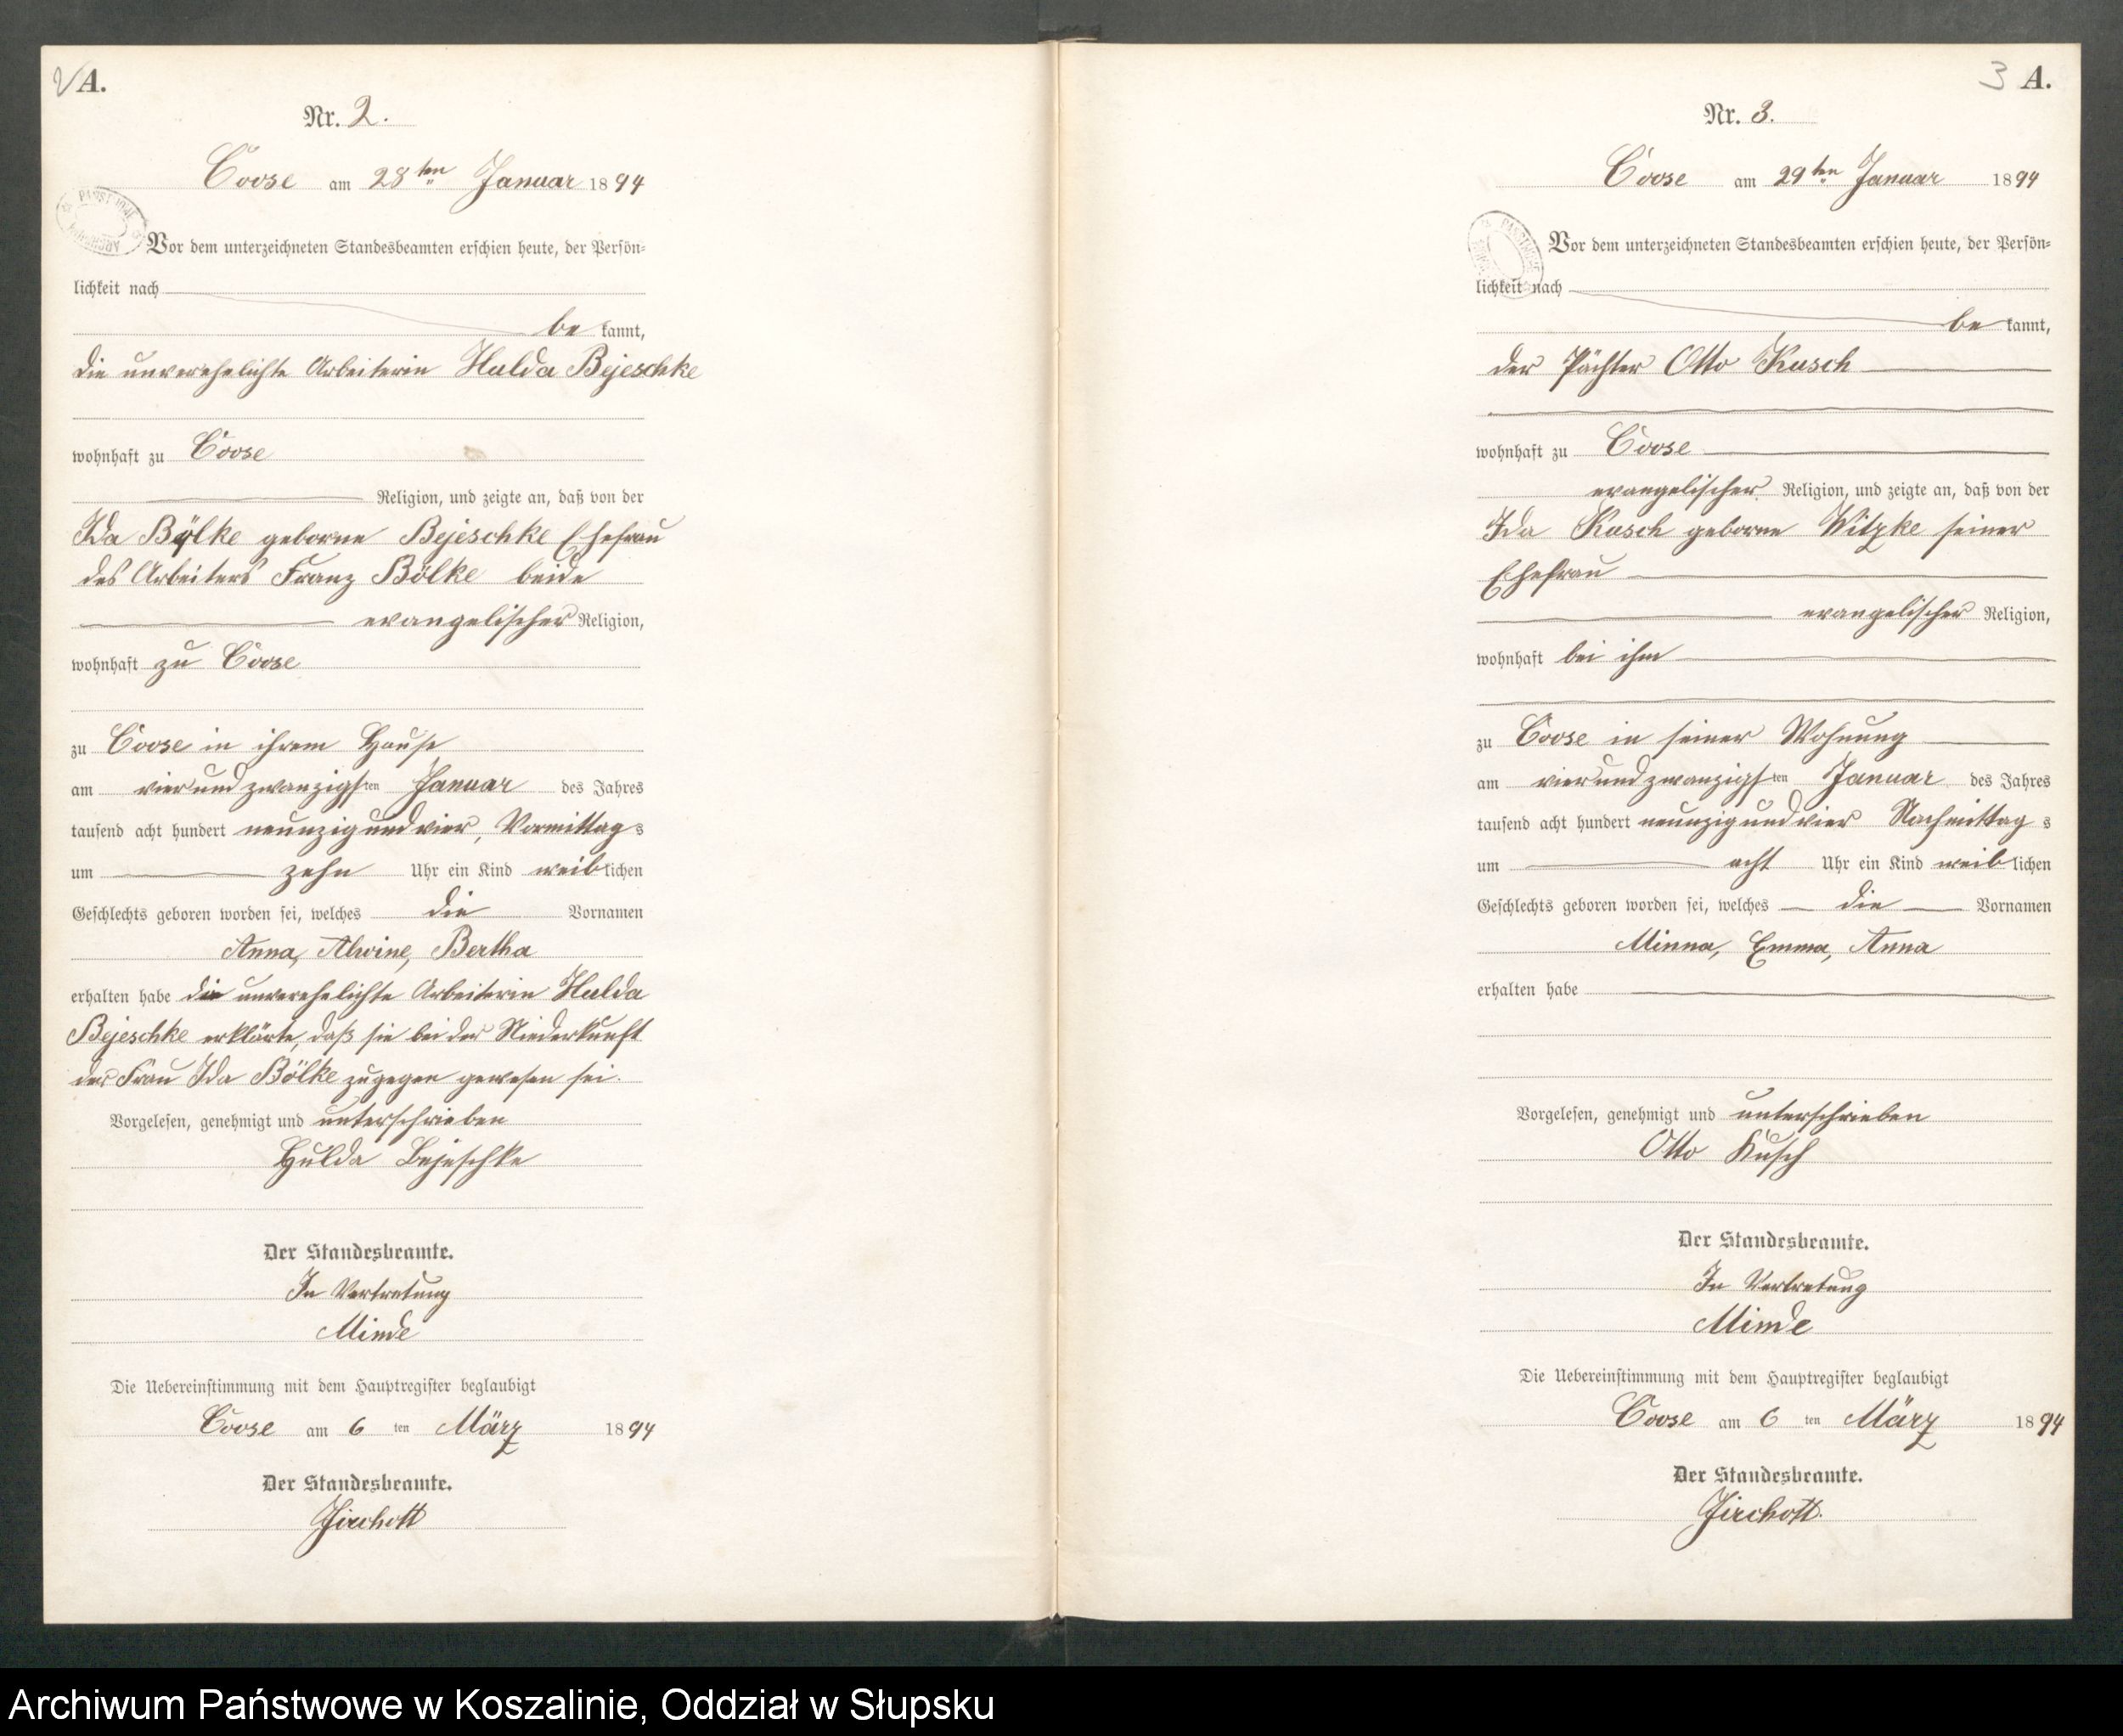 2 A.
Nr. 2.
Coose am 28ten Januar 1894
Vor dem unterzeichneten Standesbeamten erschien heute, der Persön-
lichkeit nach
be kannt,
die unverehelichte Arbeiterin Hulda Bejeschke
wohnhaft zu Coose
Religion, und zeigte an, daß von der
Ida Bölke geborne Bejeschke Ehefrau
des Arbeiters Franz Bölke beide
evangelischer Religion,
wohnhaft zu Coose
zu Coose in ihrem Hause
am vierundzwanzigsten Januar des Jahres
tausend acht hundert neunzigundvier, Vormittags
um zehn Uhr ein Kind weiblichen
Geschlechts geboren worden sei, welches die Vornamen
Anna, Alwine, Bertha
erhalten habe die unverehelichte Arbeiterin Hulda
Bejeschke erklärte, daß sie bei der Niederkunft
der Frau Ida Bölke zugegen gewesen sei.
Vorgelesen, genehmigt und unterschrieben
Hulda Bejeschke
Der Standesbeamte.
In Vertretung
Minde
Die Uebereinstimmung mit dem Hauptregister beglaubigt
Coose am 6 ten März 1894
Der Standesbeamte.
Zirchott
3 A.
Nr. 3.
Coose am 29ten Januar 1894
Vor dem unterzeichneten Standesbeamten erschien heute, der Persön-
lichkeit nach
be kannt,
der Pächter Otto Kusch
wohnhaft zu Coose
evangelischer Religion, und zeigte an, daß von der
Ida Kusch geborne Witzke seiner
Ehefrau
evangelischer Religion,
wohnhaft bei ihm
zu Coose in seiner Wohnung
am vierundzwanzigsten Januar des Jahres
tausend acht hundert neunzigundvier Nachmittags
um acht Uhr ein Kind weiblichen
Geschlechts geboren worden sei, welches die Vornamen
Minna, Emma, Anna
erhalten habe
Vorgelesen, genehmigt und unterschrieben
Otto Kusch
Der Standesbeamte.
In Vertretung
Minde
Die Uebereinstimmung mit dem Hauptregister beglaubigt
Coose am 6 ten März 1894
Der Standesbeamte.
Zirchott.
Archiwum Państwowe w Koszalinie, Oddział w Słupsku